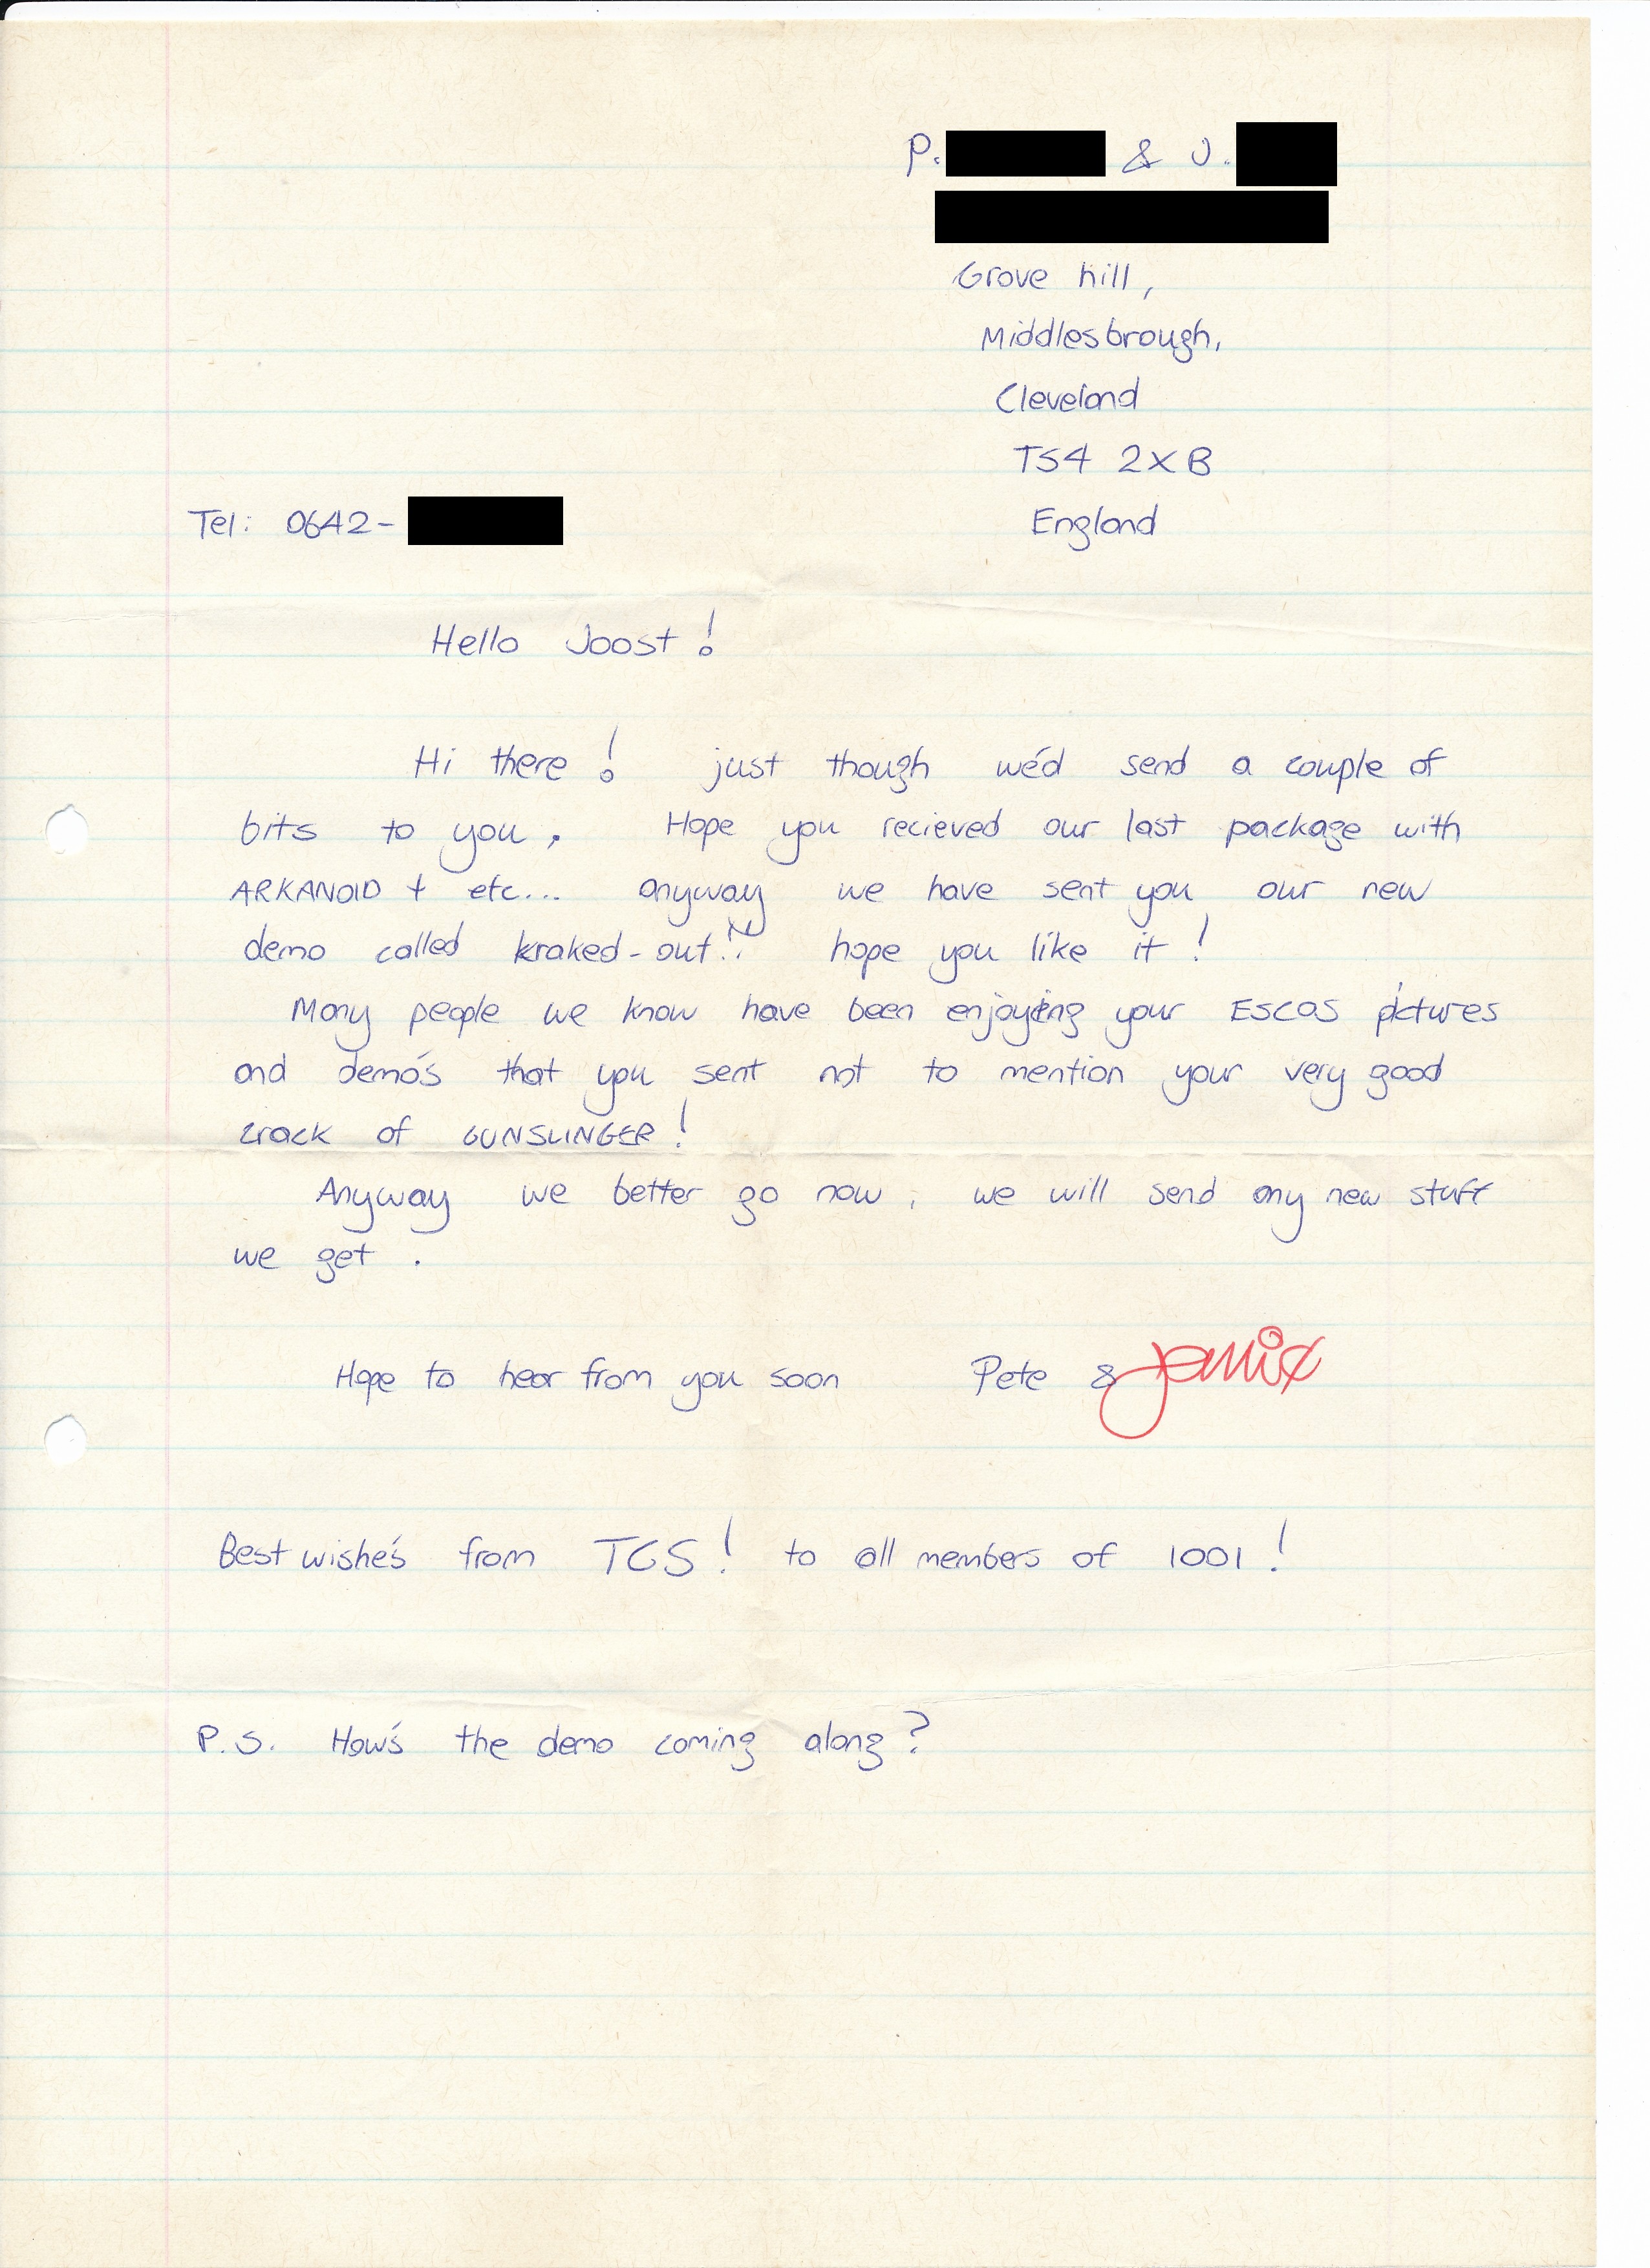 P. & J.
Grove hill,
Middlesbrough,
Cleveland
TS4 2XB
Tel: 0642-
England
Hello Joost!
Hi there! just though we'd send a couple of
bits to you. Hope you recieved our last package with
ARKANOID + etc... anyway we have sent you our new
demo called kraked-out!! hope you like it!
Many people we know have been enjoying your ESCOS pictures
and demo's that you sent not to mention your very good
crack of GUNSLINGER!
Anyway we better go now, we will send any new stuff
we get.
Hope to hear from you soon Pete &
Best wishe's from TCS! to all members of 1001!
P.S. How's the demo coming along?